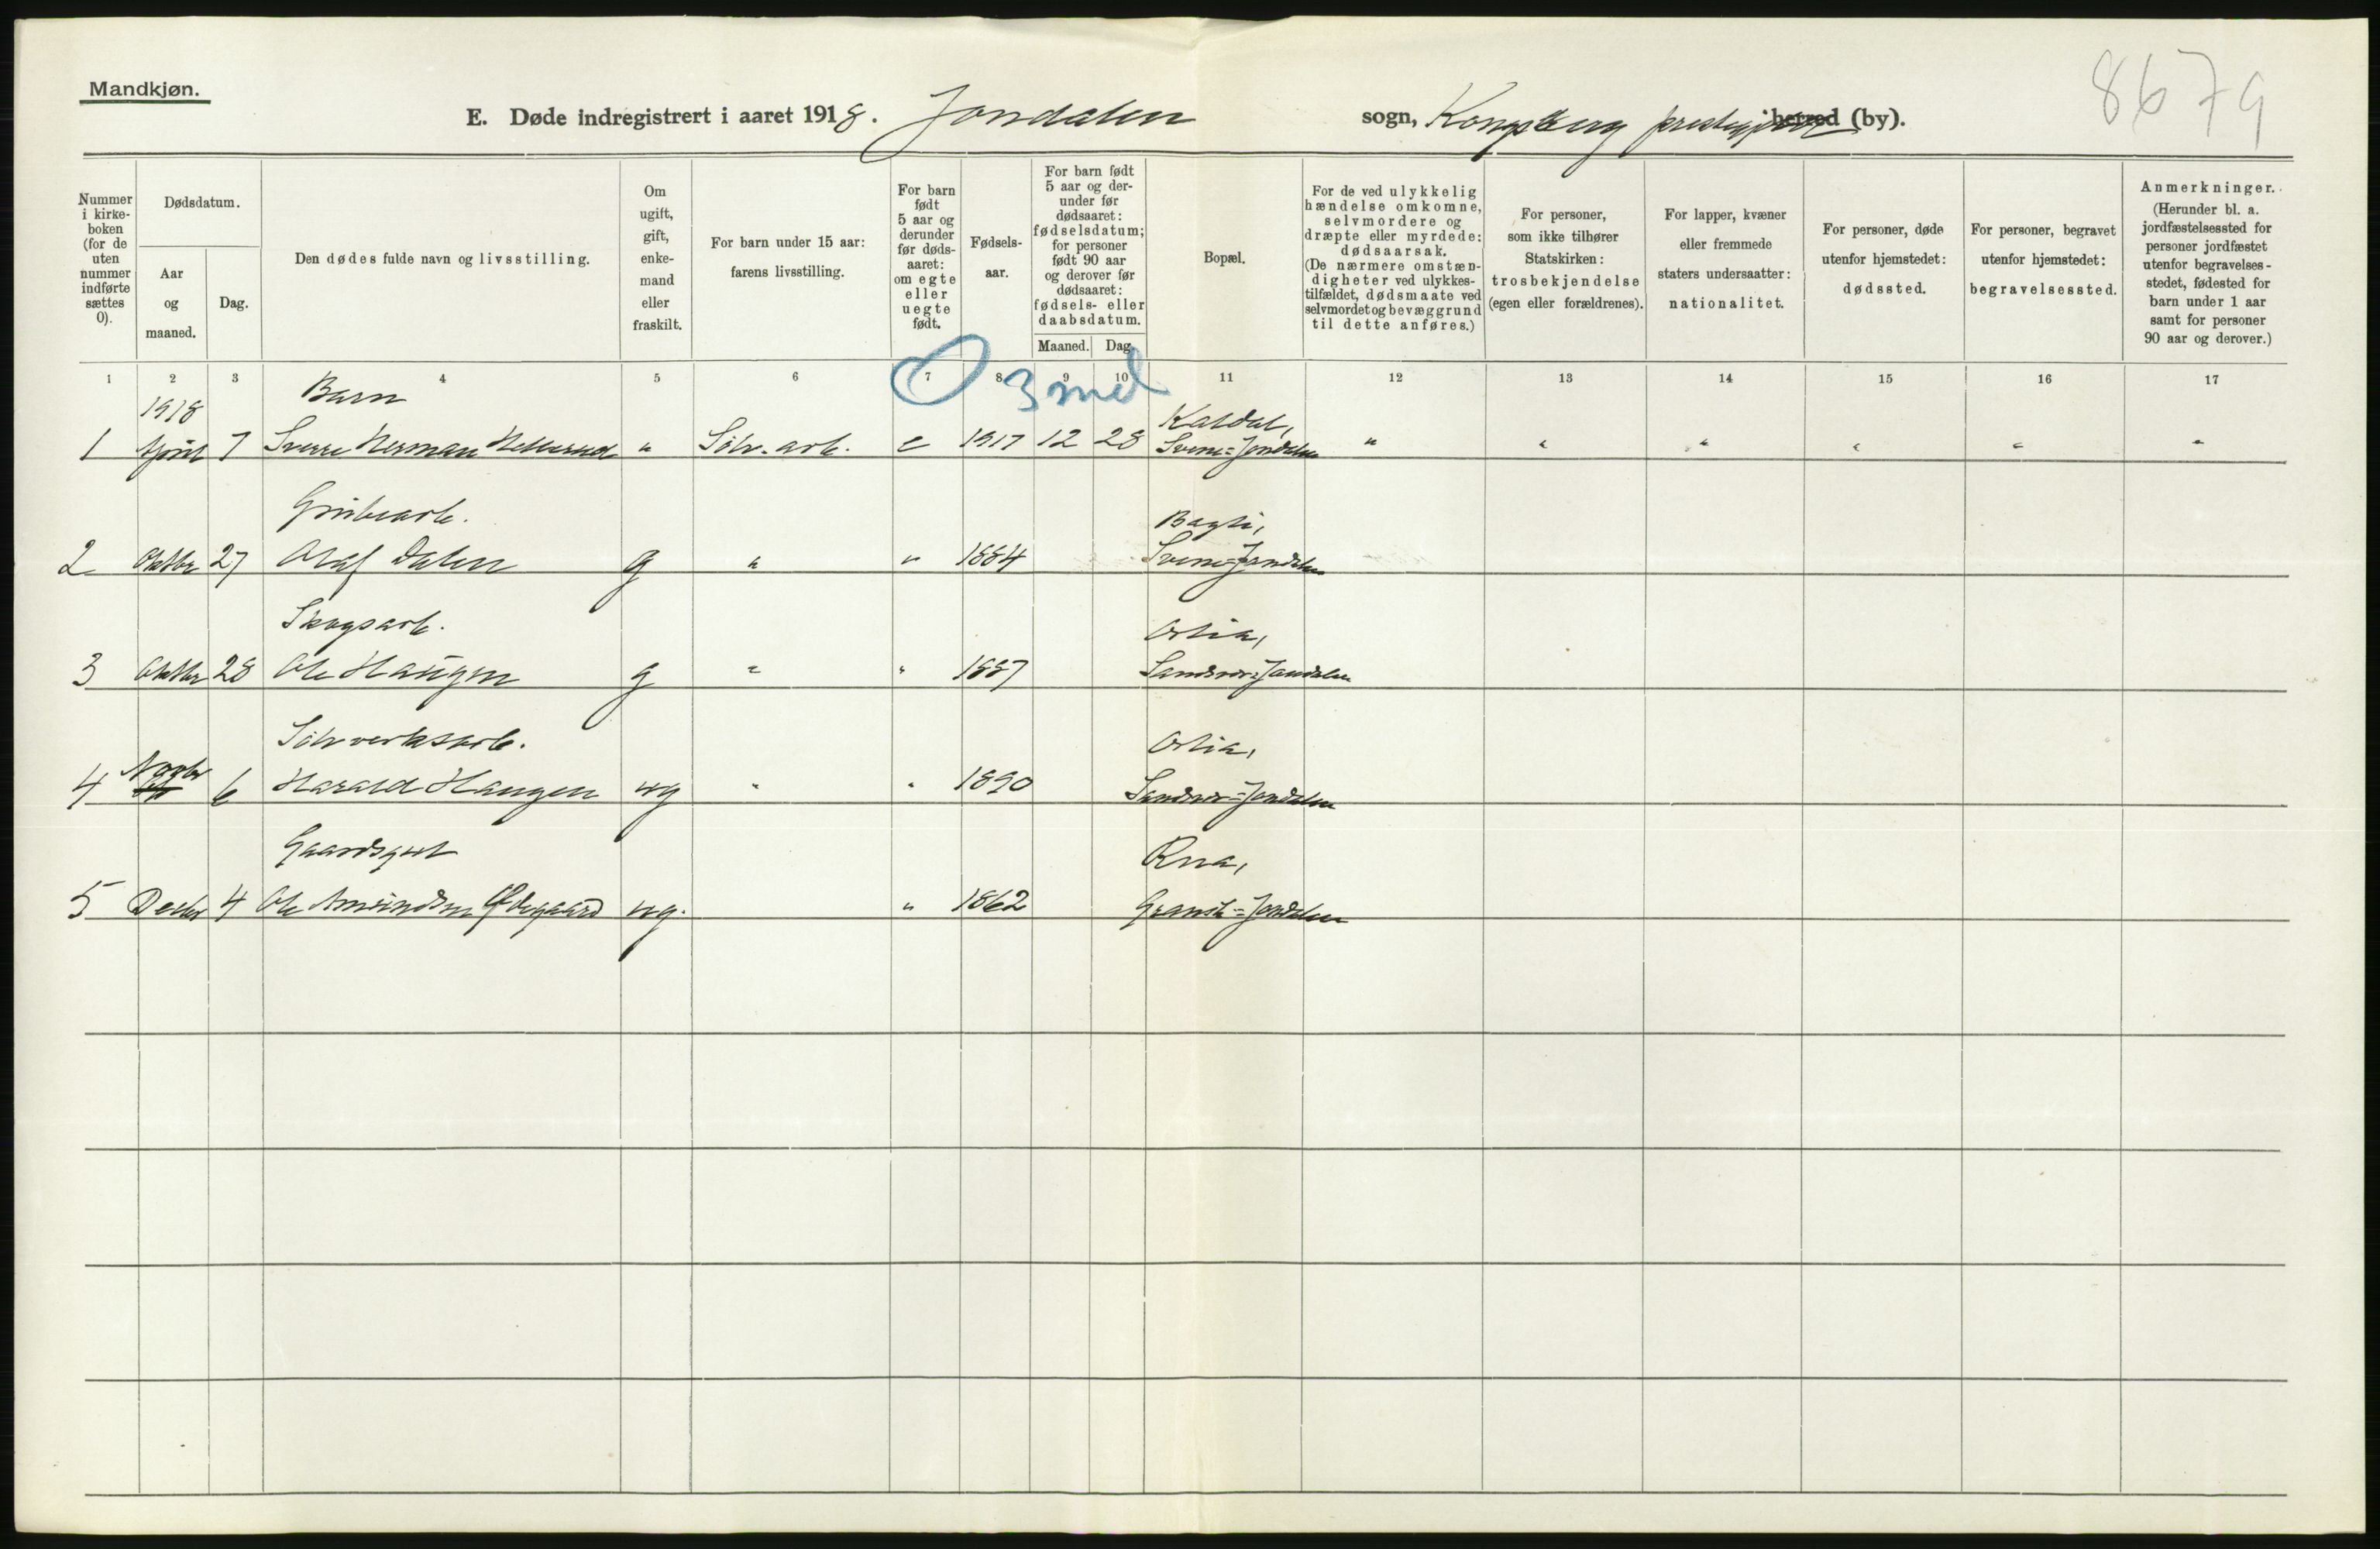 Mandkjøn.
8679
E. Døde indregistrert i aaret 1918. Jondalen sogn, Kongsberg prestegjeld herred (by).
Nummer i kirke- boken (for de uten nummer indførte sættes 0).
Dødsdatum.
Aar og maaned.
Dag.
Den dødes fulde navn og livsstilling.
Om ugift, gift, enke- mand eller fraskilt.
For barn under 15 aar: farens livsstilling.
For barn født 5 aar og derunder før døds- aaret: om egte eller uegte født.
Fødsels- aar.
For barn født 5 aar og der- under før dødsaaret: fødselsdatum; for personer født 90 aar og derover før dødsaaret: fødsels- eller daabsdatum.
Maaned. Dag.
Bopæl.
For de ved ulykkelig hændelse omkomne, selvmordere og dræpte eller myrdede: dødsaarsak. (De nærmere omstæn- digheter ved ulykkes- tilfældet, dødsmaate ved selvmordet og bevæggrund til dette anføres.)
For personer, som ikke tilhører Statskirken: trosbekjendelse (egen eller forældrenes).
For lapper, kvæner eller fremmede staters undersaatter: nationalitet.
For personer, døde utenfor hjemstedet: dødssted.
For personer, begravet utenfor hjemstedet: begravelsessted.
Anmerkninger. (Herunder bl. a. jordfæstelsessted for personer jordfæstet utenfor begravelses- stedet, fødested for barn under 1 aar samt for personer 90 aar og derover.)
1 2 3 4 5 6 7 8 9 10 11 12 13 14 15 16 17
3 med
1918 Barn Kaldal,
1 April 7 Sverre Herman Hellerud " Sølv. arb. e 1917 12 28 Svene=Jondalen " " " " " "
Grubearb.
2 Oktbr 27 Olaf Dalen g " " 1884 Svene=Jondalen
Skogsarb. Oslia,
3 Oktbr 28 Ole Haugen g " " 1887 Sandsvær=Jondalen
Sølvverksarb. Oslia,
4 Novbr 6 Harald Haugen ug " " 1890 Sandsvær=Jondalen
Gaardsgut Rua,
5 Decbr 4 Ole Amundsen Ødegaard ug. " 1862 Gransh.=Jondalen